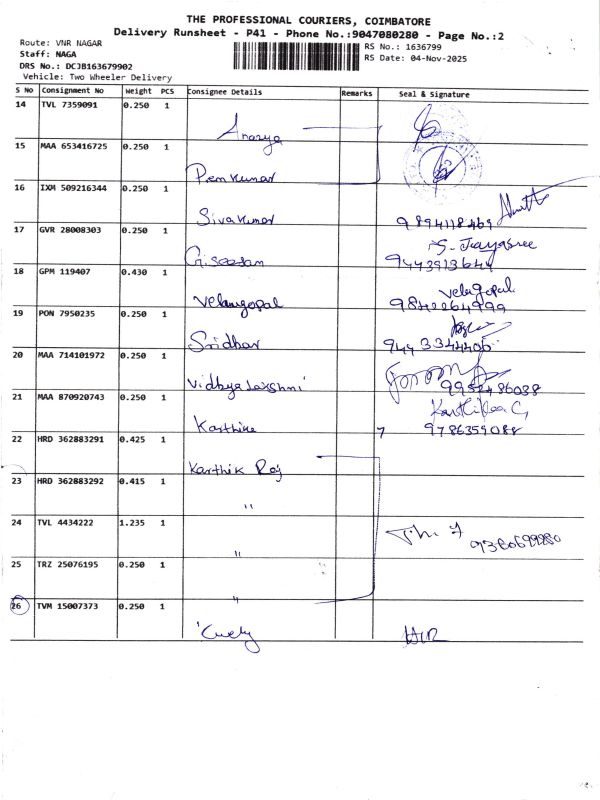 THE PROFESSIONAL COURIERS, COIMBATORE
Delivery Runsheet - P41 - Phone No.:9047080280 - Page No.:2
Route: VNR NAGAR
RS No.: 1636799
Staff: NAGA
RS Date: 04-Nov-2025
DRS No.: DCJB163679902
Vehicle: Two Wheeler Delivery
S No Consignment No Weight PCS Consignee Details Remarks Seal & Signature
14 TVL 7359091 0.250 1
15 MAA 653416725 0.250 1
Premkumar
16 IXM 509216344 0.250 1
Sivakumar 9894118469
17 GVR 28008303 0.250 1
S. Jayasree
9443913644
18 GPM 119407 0.430 1
Velangopal
19 PON 7950235 0.250 1
Sridhar
20 MAA 714101972 0.250 1
Vidhyalakshmi
21 MAA 870920743 0.250 1
9786359088
22 HRD 362883291 0.425 1
Karthik Raj
23 HRD 362883292 0.415 1
"
24 TVL 4434222 1.235 1
"
25 TRZ 25076195 0.250 1
"
26 TVM 15007373 0.250 1